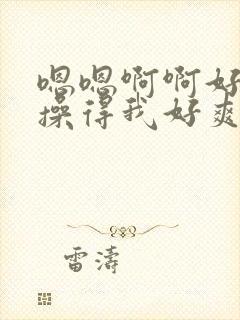 嗯嗯啊啊好
操得我好爽
雷濤